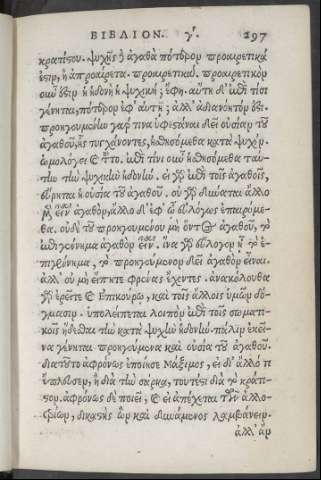 ΒΙΒΛΙΟΝ. γ'. 297
κρατίσου. ψυχῆς ἢ ἀγαθὰ πότερον προαιρετικά
ἐστιν, ἢ ἀπροαίρετα. προαιρετικά. προαιρετικὸν
οὖν ἐστιν ἡ ἡδονὴ ἡ ψυχική; ἔφη. αὕτη δ' ἐπὶ τίσι
γίνεται, πότερον ἐφ' αὑτῇ; ἀλλ' ἀδιανόητόν ἐστι.
προηγουμένην γάρ τινα ὑφεστάναι δεῖ οὐσίαν τοῦ
ἀγαθοῦ, ἧς τυγχάνοντες, ἡσθησόμεθα κατὰ ψυχήν.
ὡμολόγει καὶ τοῦτο. ἐπὶ τίνι οὖν ἡσθησόμεθα ταύ-
την τὴν ψυχικὴν ἡδονήν. εἰ γὰρ ἐπὶ τοῖς ἀγαθοῖς,
εὕρηται ἡ οὐσία τοῦ ἀγαθοῦ. οὐ γὰρ δύναται ἄλλο
μὲν εἶναι ἀγαθὸν, ἄλλο δ' ἐφ' ᾧ εὐλόγως ἐπαιρόμε-
θα. οὐδὲ τοῦ προηγουμένου μὴ ὄντος ἀγαθοῦ, τὸ
ἐπιγέννημα ἀγαθὸν εἶναι. ἵνα γὰρ εὔλογον ᾖ τὸ ἐ-
πιγέννημα, τὸ προηγούμενον δεῖ ἀγαθὸν εἶναι.
ἀλλ' οὐ μὴ εἴπητε φρένας ἔχοντες. ἀνακόλουθα
γὰρ ἐρεῖτε καὶ Ἐπικούρῳ, καὶ τοῖς ἄλλοις ὑμῶν δό-
γμασιν. ὑπολείπεται λοιπὸν ἐπὶ τοῖς σωματι-
κοῖς ἥδεσθαι τὴν κατὰ ψυχὴν ἡδονήν. πάλιν ἐκεῖ-
να γίνεται προηγούμενα καὶ οὐσία τοῦ ἀγαθοῦ.
διὰ τοῦτο ἀφρόνως ἐποίησε Μάξιμος, εἰ δι' ἄλλο τι
ἔπλευσεν, ἢ διὰ τὴν σάρκα, τουτέστι διὰ τὸ κράτι-
σον. ἀφρόνως δὲ ποιεῖ, καὶ εἰ ἀπέχεται τῶν ἀλλο-
τρίων, δικαστὴς ὢν καὶ δυνάμενος λαμβάνειν.
ἀλλ' ἂν